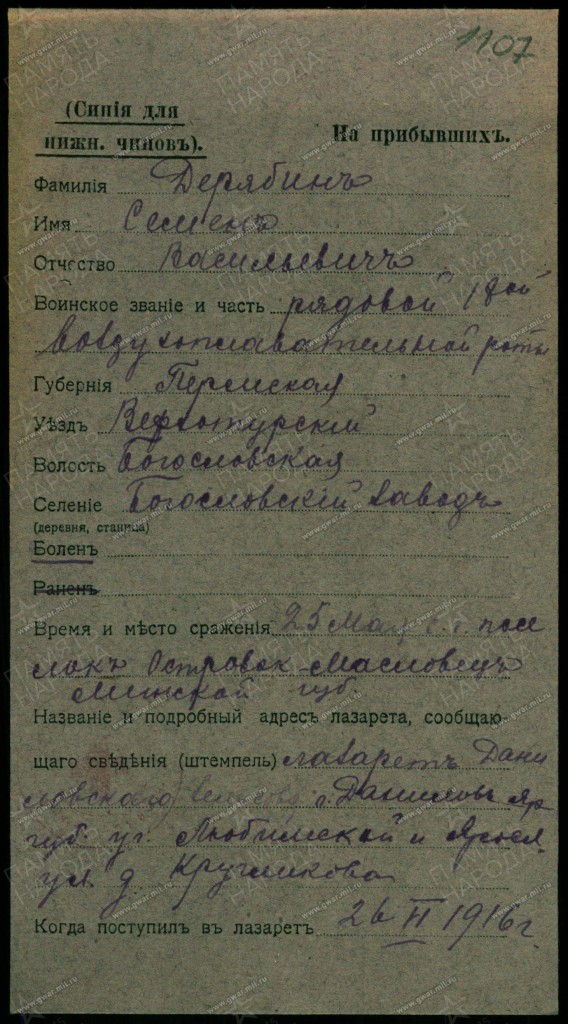 1107
(Синія для
нижн. чиновъ).
На прибывшихъ.
Фамилія Дерябинъ
Имя Семенъ
Отчество Васильевичъ
Воинское званіе и часть рядовой 1 вой
воздухоплавательной роты
Губернія Пермская
Уѣздъ Верхотурскій
Волость Богословская
Селеніе Богословскій заводъ
(деревня, станица)
Боленъ
Раненъ
Время и мѣсто сраженія 25 Мая с.г. посе
локъ Островок-Масловецъ
Минской губ.
Названіе и подробный адресъ лазарета, сообщаю-
щаго свѣдѣнія (штемпель) лазаретъ Дани
ловскаго г. Даниловъ Яр
губ. уг. Любимской и Яросл.
ул. д. Кругликова
Когда поступилъ въ лазаретъ 26 VI 1916 г
ПАМЯТЬ НАРОДА
www.gwar.mil.ru